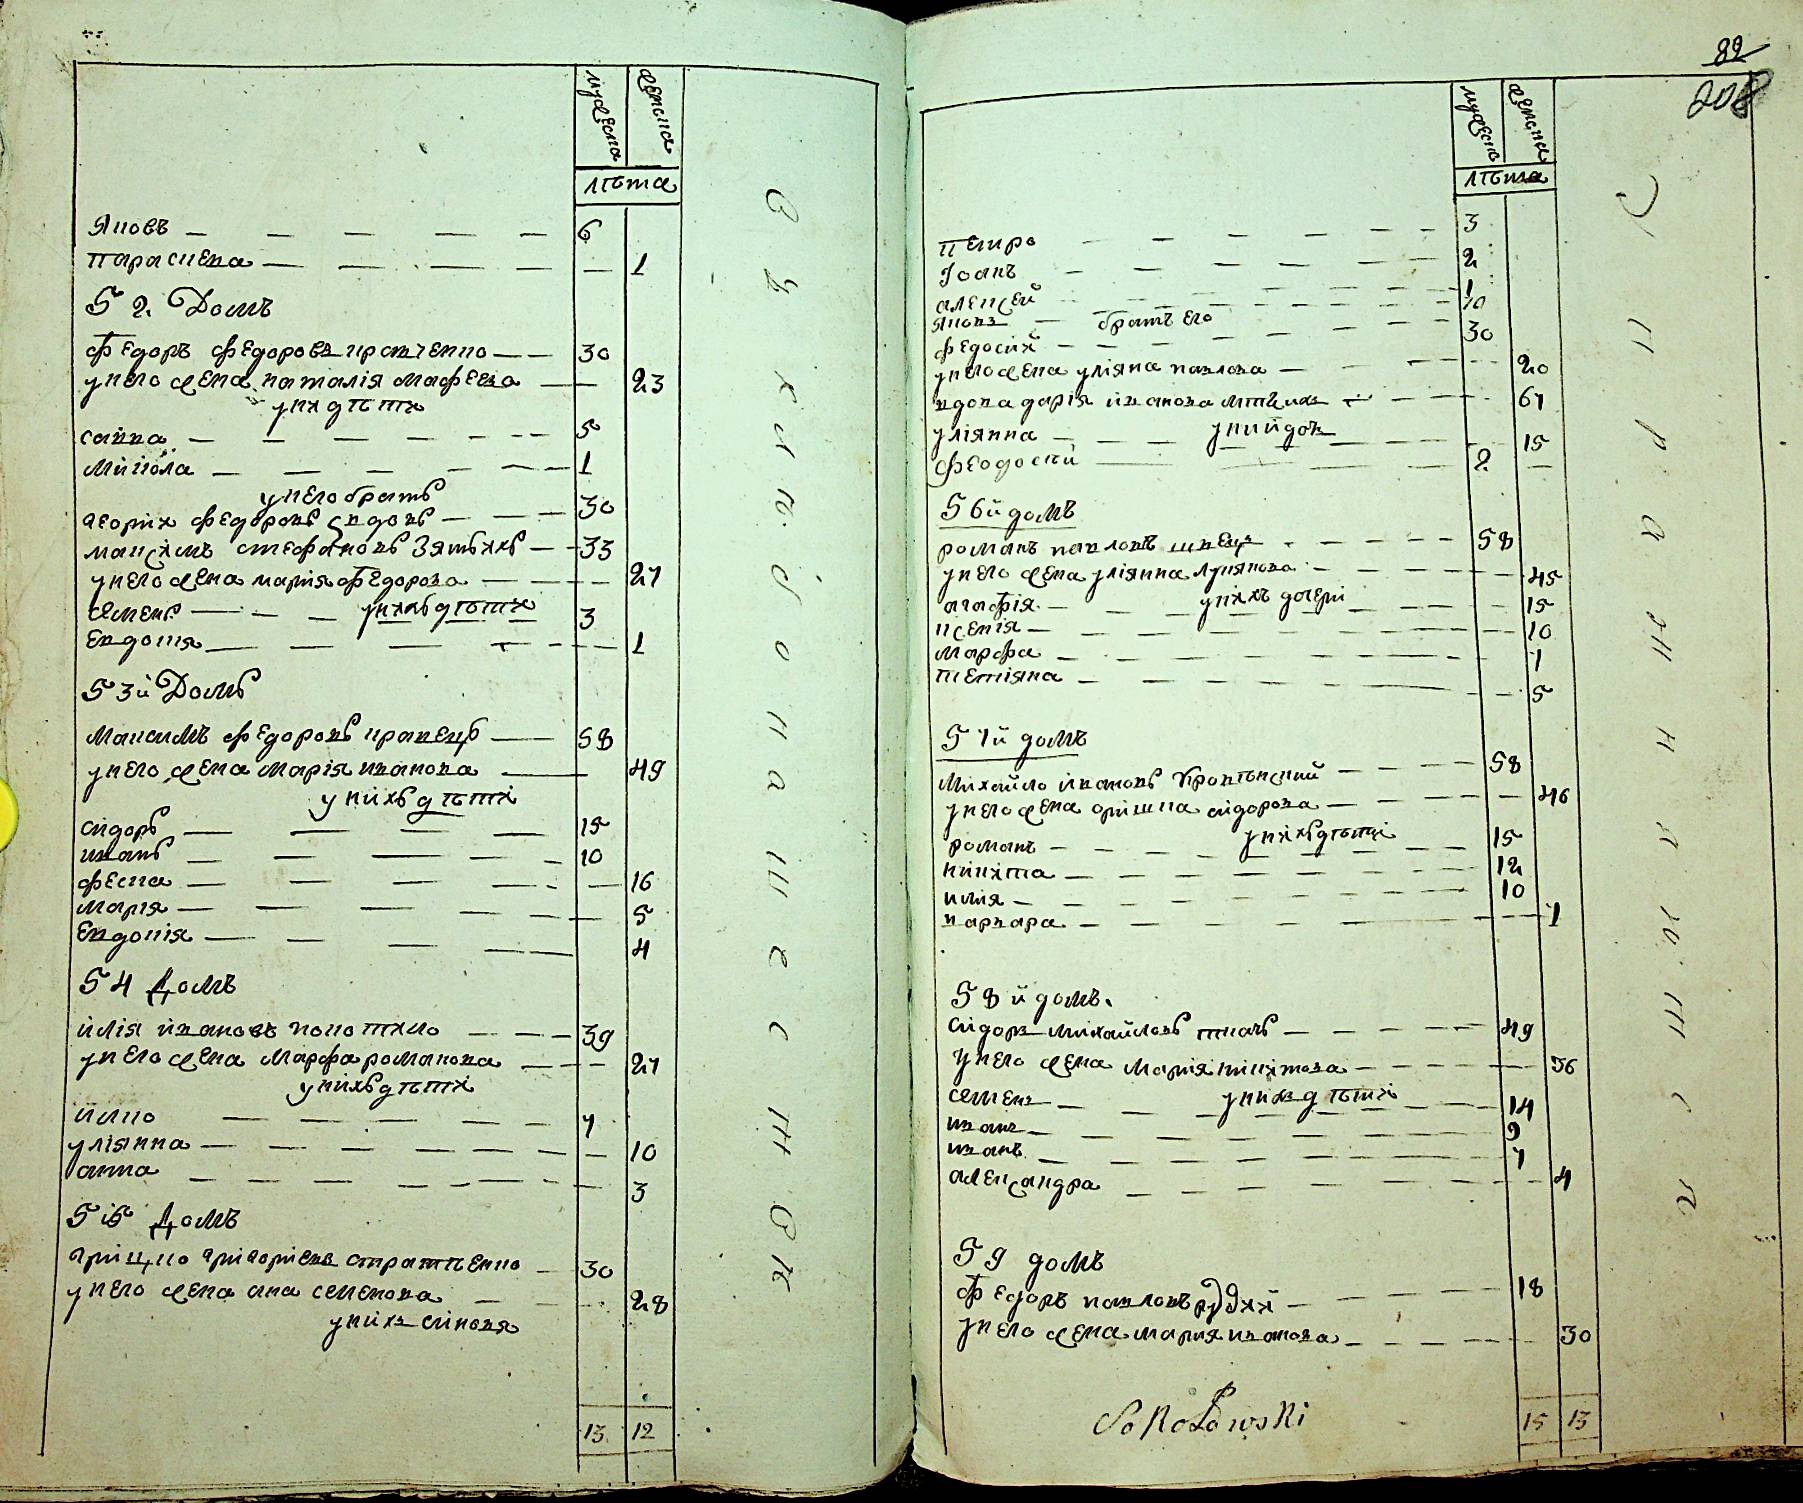 мужеска женска
лѣта
Яковъ — — — — — 6
параскева — — — — — 1
52. Домъ
Федоръ федоровъ кравченко — — 30
у него жена наталія мафеева — — 23
у них дѣти
савка — — — — — 5
микола — — — — — 1
у него братъ
георгіи федоровъ вдовъ — — — 30
максимъ стефановъ зять ихъ — — 33
у него жена марія федорова — — — 27
у нихъ дѣти
семенъ — — — 3
Евдокия — — — — — 1
53й Домъ
Максимъ федоровъ кравецъ — 58
у него жена Марія иванова — 49
у нихъ дѣти
сидоръ — — — — 15
иванъ — — — — 10
феска — — — — — 16
Марія — — — — — 5
Евдокія — — — — 4
54 Домъ
илія ивановъ кокотило — — 39
у него жена Марфа романова — — 27
у нихъ дѣти
илко — — — — — 7
уліянна — — — — — 10
анна — — — — — 3
55 Домъ
грицко григоріевъ стратіенко — 30
у него жена ана семенова — — 28
у нихъ синовя
13 12
82
208
мужескъ женска
лѣта
петро — — — — — 3
Іоанъ — — — — — 2
алексей — — — — — 1
яковъ — братъ его — — 10
федосий — — — — — 30
у него жена уліяна павлова — — — 20
вдова дарія иванова мать ихъ — — — 67
у ний дѣти
уліянна — — — — 15
феодосій — — — 2
56й домъ
романъ павловъ швецъ — — — — 58
у него жена уліянна лукянова — — — 45
у нихъ дочери
агафія — — — — 15
ксенія — — — — — 10
марфа — — — — — 1
тетіяна — — — — — 5
57й домъ
Михайло ивановъ — — — 58
у него жена оришка сидорова — — — 46
у нихъ дѣти
романъ — — — — 15
никита — — — — — 12
илия — — — — — 10
варвара — — — — — 1
58й домъ.
сидоръ михайловъ ткачъ — — — — 49
у него жена марія никитова — — — 36
у нихъ дѣти
семенъ — — — — 14
иванъ — — — — — 9
иванъ — — — — — 7
александра — — — — — 4
59 домъ
федоръ павловъ рудий — — — — 18
у него жена мария иванова — — — — 30
Sokołowski
15 13